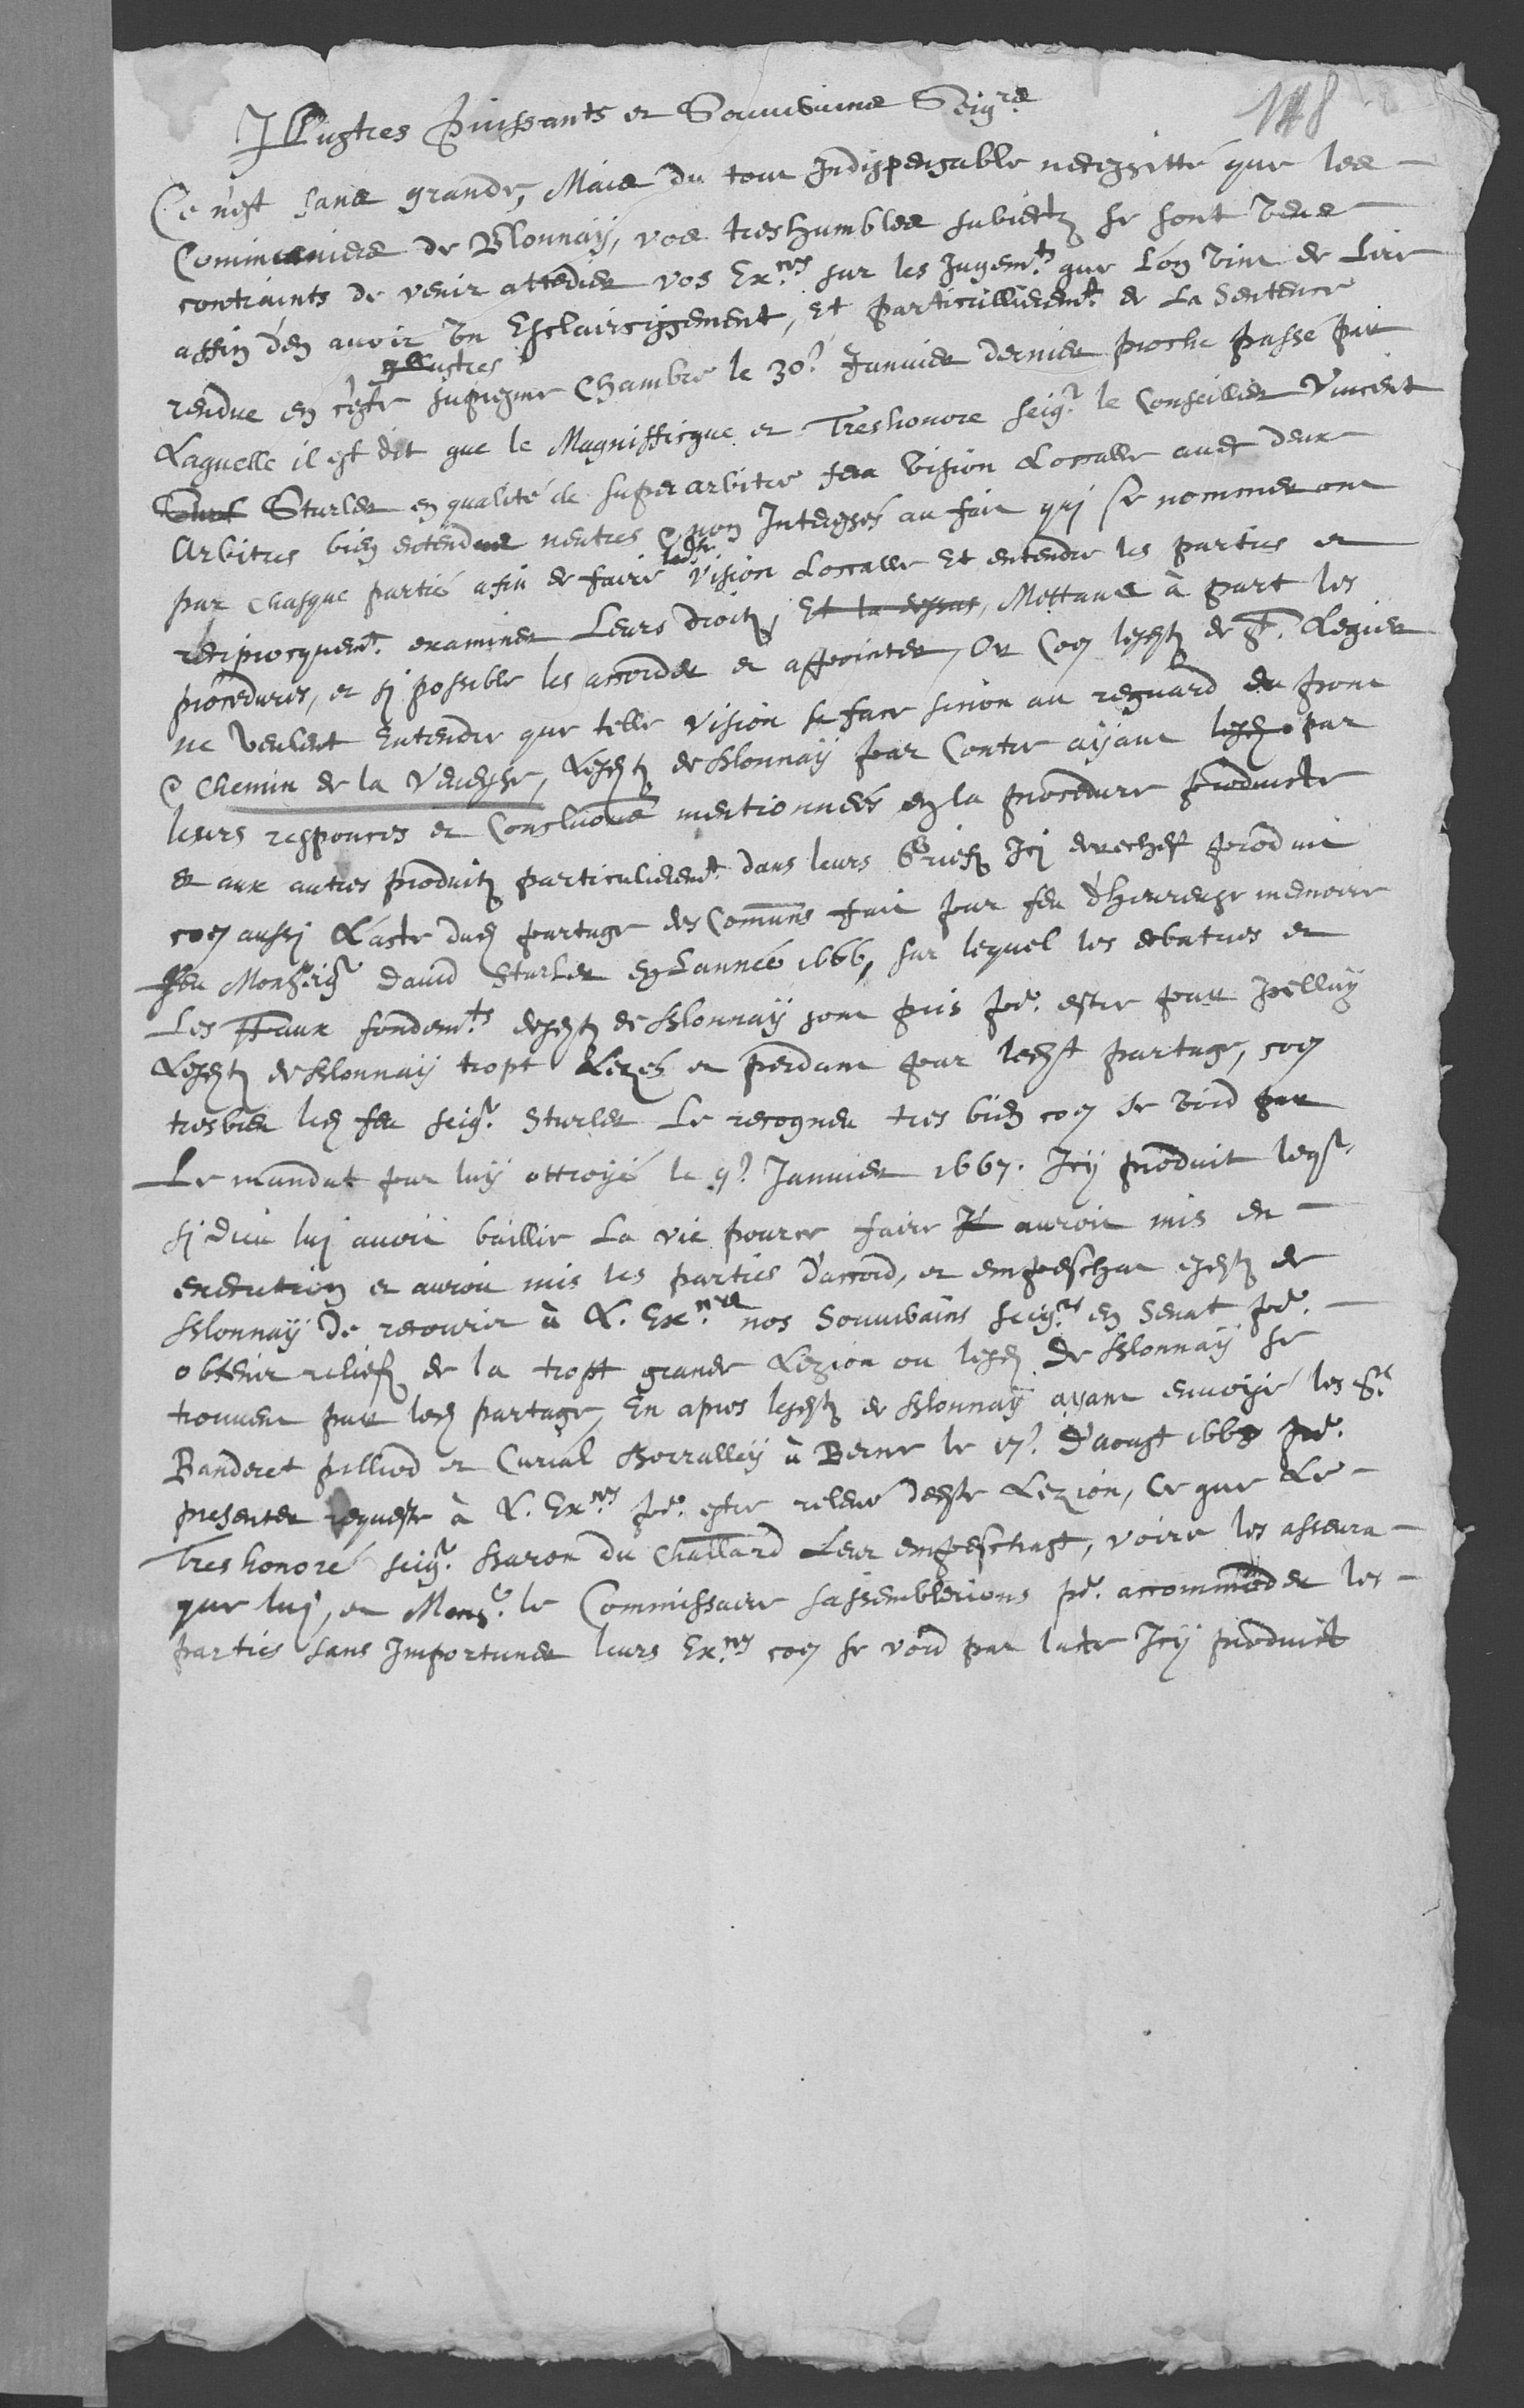 148
Illustres Puissants et Souuerains Seig.rs
Ce n'est sans grande, Mais du tout Indispensable necessitté que les
Communiers de Blonnaÿ, vos treshumbles subiectz se sont veus
contraints de venir attedier vos Ex.ces sur les Jugem.ts que l'on vient de Lire
affin d'en auoir vn Esclaircissement, Et particullierem.t de La Sentence
rendue en ceste Illustres supresme Chambre le 30.e Januier dernier proche passe par
Laquelle il est dit que le Magniffique et Treshonore seig.r le Conseillier Vincent
Sturler en qualité de superarbitre fera Vision Localle auec deux
Arbitres bien entendus neutres & non Interessés au fait qui se nommeront
par chasque partie afin de faire ladte Vision Localle Et entendre les parties et
reciprocquem.t examiner Leurs droitz, Et la dessus, Mettans à part les
procedures, et si possible les accorder et appointer, Or Coe lesdtz de St. Legier
ne veulent Entendre que telle vision se face sinon au reguard du pont
& Chemin de la Veueyse, Lesdtz de Blonnaÿ par Contre aÿant lesd par
leurs responces et Conclusions mentionnées en la procedure produicte
et aux autres produitz particulierem.t dans leurs Griefz Icy derechef produit
coe aussi L'acte dud partage des Commūns fait par feu d'heureuse memoire
feu Monseig.r Dauid Sturler en L'année 1666, sur lequel les debatues et
Les Vraux fondem.ts desdtz de Blonnaÿ sont pris pr. estre par Icelluy
Lesdtz de Blonnaÿ tropt Lezés et perdant par ledit partage, coe
tresbien led feu seig.r Sturler Le recogneu tres bien coe se void par
Le mandat par luÿ ottroÿé le 9.e Januier 1667. Icÿ produit leqt
si dieu luy auoit baillie La vie pource faire Il auroit mis en
execution et auroit mis les parties d'accord, et empeschat esdtz de
Blonnaÿ De recourir à L. Ex.ces nos Souuerains seig.rs en Senat pr.
obtenir relief de la tropt grande Lezion ou lesd De Blonnaÿ se
trouuent par led partage, En apres lesdtz de Blonnaÿ aÿant enuoÿé les Srs
Banderet pilliod et Curial Borralleÿ à Berne le 17.e D'aoust 1668 pr.
presenter requeste à L. Ex.ces pr. estre releué deste Lezion, Ce que Le
Tres honoré seig.r Baron du Chastlard Leur empeschast, voire les asseura
que luy, et Mons.r le Commissaire sassemblerions pr. accommoder les
parties sans Importuner leurs Ex.ces coe se void par lacte Icÿ produict